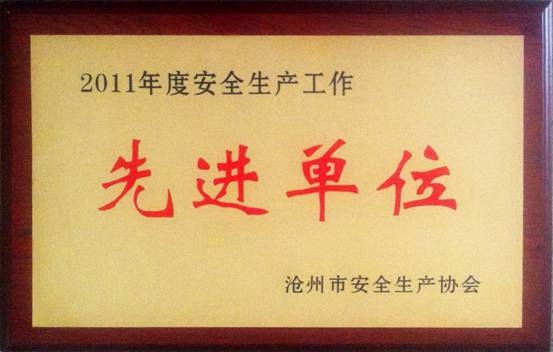 2011年度安全生产工作
先进单位
沧州市安全生产协会